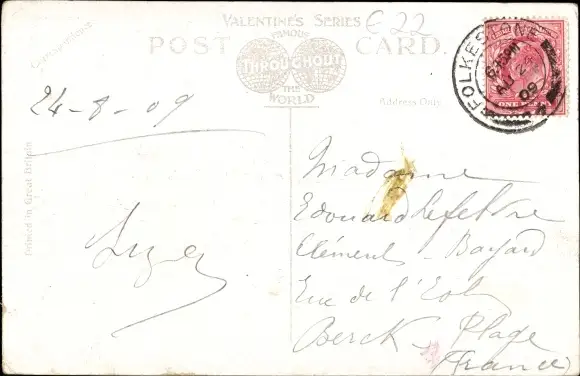 VALENTINE'S SERIES
C 22
FAMOUS
POST CARD.
THROUGHOUT
THE WORLD
Address Only.
FOLKESTONE
AU 2
09
ONE PENNY
Printed in Great Britain
24-8-09
Madame
Edouard Lefebvre
Clément - Bayard
Rue de l'
Berck - Plage
(France)